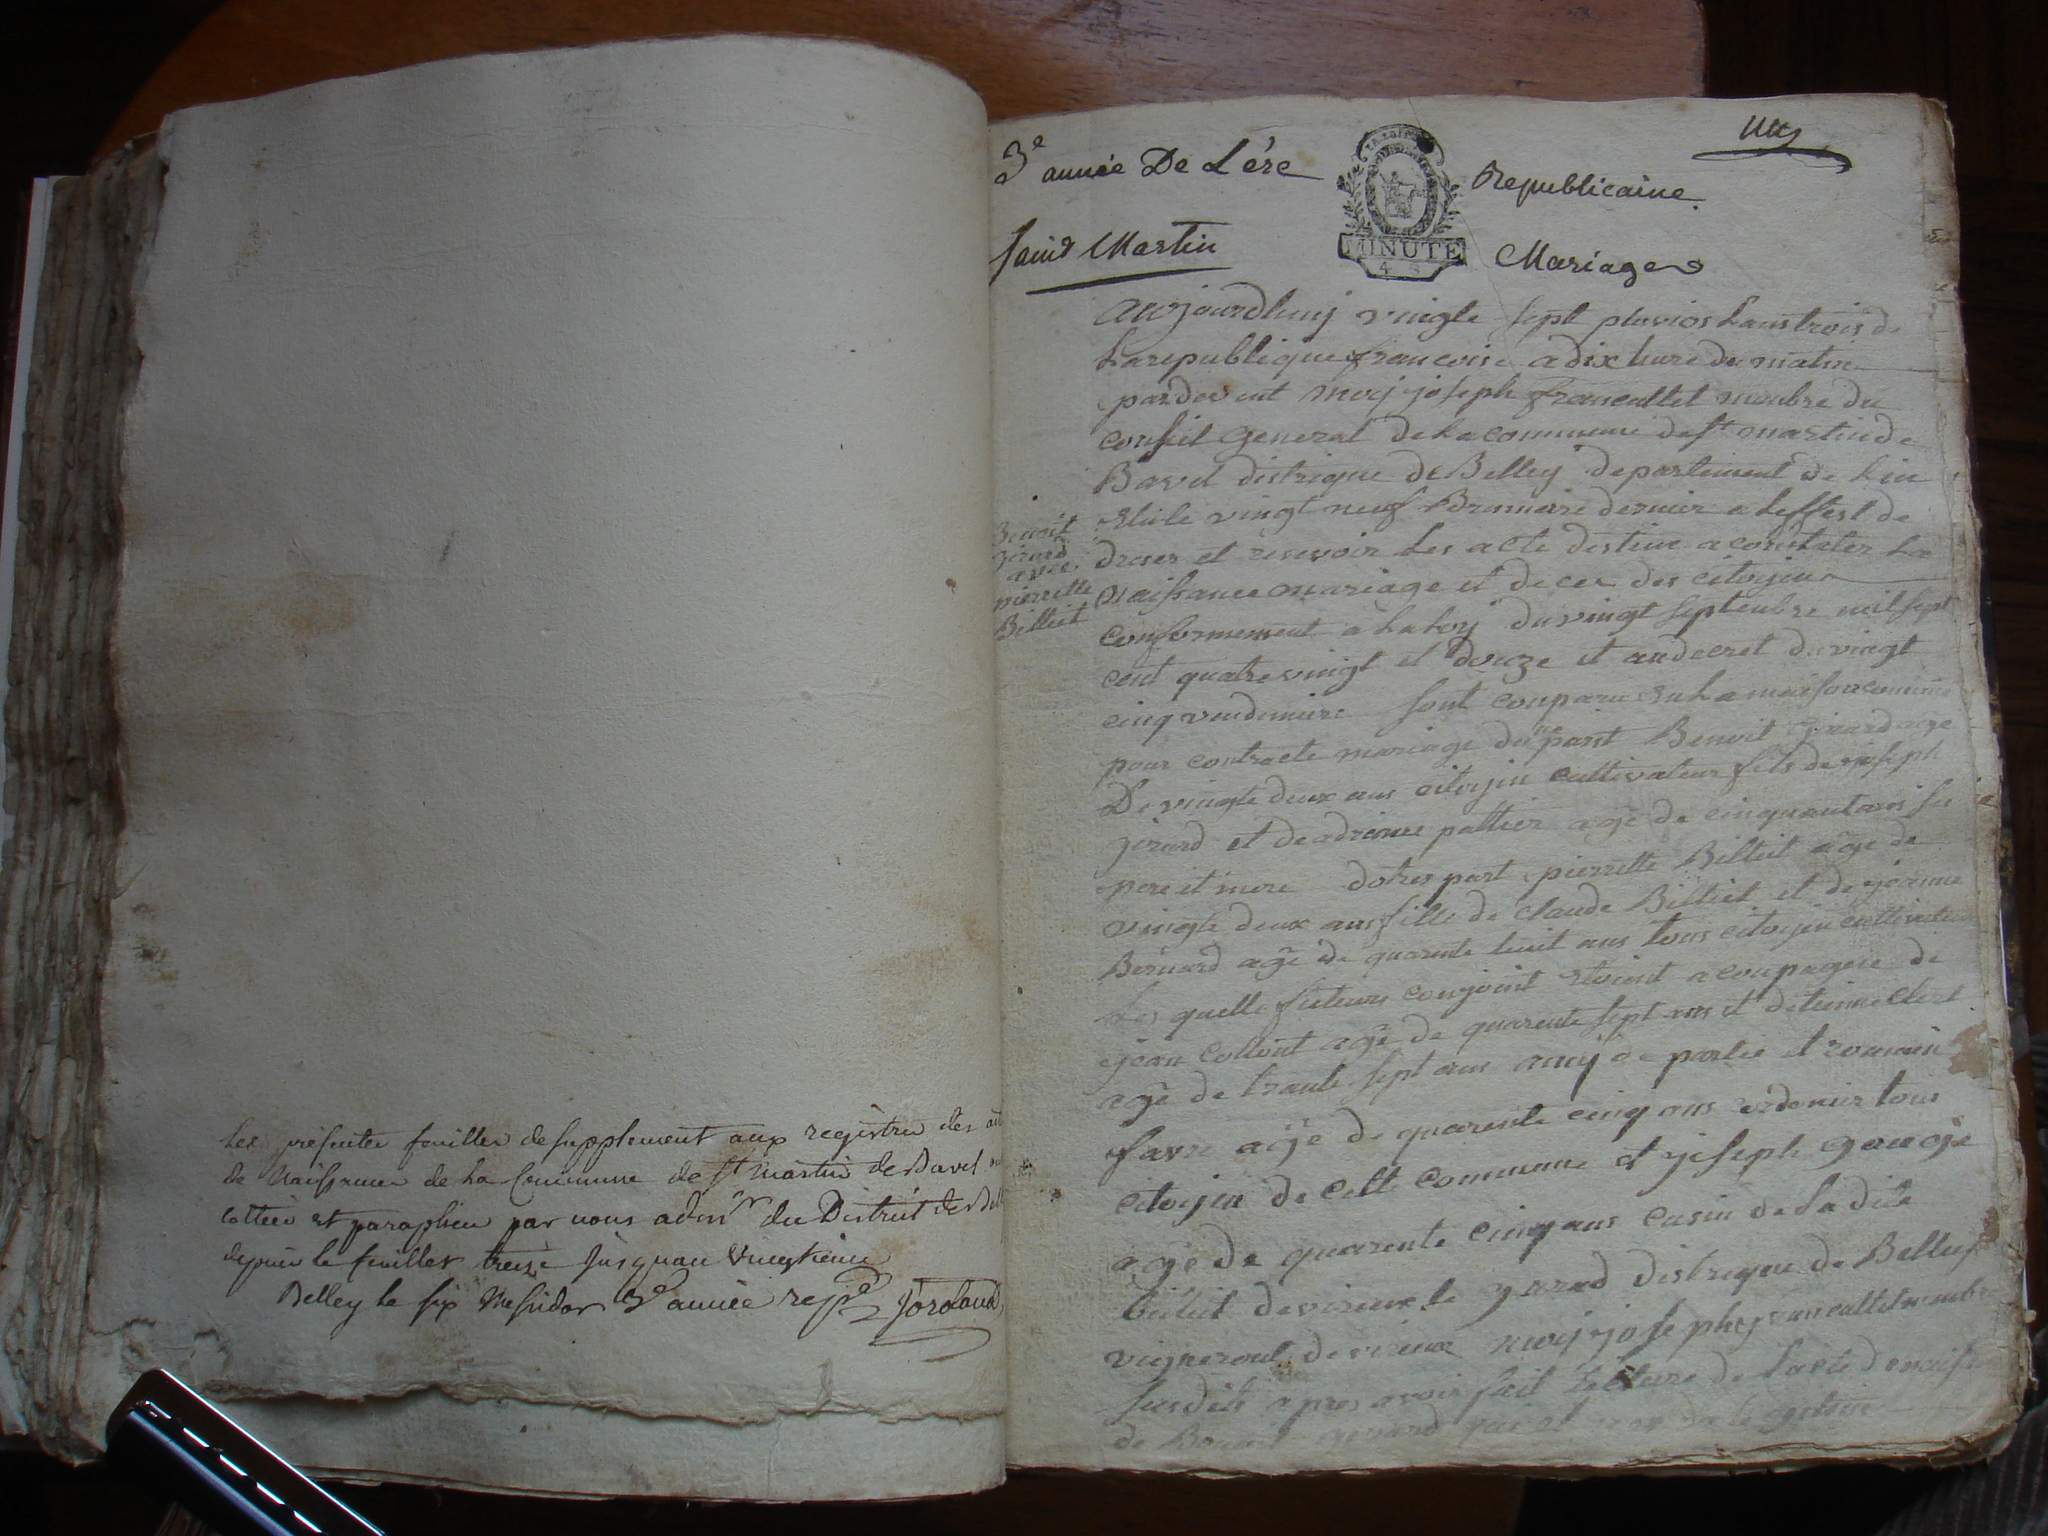 Les présentes feuilles de supplement aux registres des
de Naissances de la Commune de St Martin de Bavel
cottées et paraphées par nous admr du District de
depuis le feuillet treize jusquau vingtieme
Belley le six Messidor 3e année repe
3e année De L'ére Republicaine.
MINUTE
Saint Martin Mariages
Benoit
girard
avec
pierrette
Billiet
aujourdhuy vingte sept pluvios Lans trois de
La republique francoise a dix heure du matin
pardevent moy joseph francallet menbre du
conseil general de La commune de st martin de
Bavel distrique de Belley departement de Lin
Elu le vingt neuf Brumaire dernier a Leffest de
dreser et resevoir Les acte destine a constater La
Naissance mariage et deces des citoyins
conformement a La loy du vingt septenbre mil sept
cent quatre vingt et douze et au decret du vingt
cinq vendemiere sont conparu en La maison comune
pour contracte mariage dune part Benoit girard age
De vingte deux ans citoyin cultivateur fils de joseph
girard et de adrienne pattier age de cinquant ans
pere et mere dotres part pierrette Billiet age de
vingte deux ans fille de claude Billiet et de jeanne
Bernard age de quarente huit ans tous citoyin cultivateur
Les quelle futeurs conjoint etoint aconpagné de
jean age de quarente sept ans et
age de trante sept ans amy de partie et romain
favre age de quarente cinq ans tous
citoyin de cette commune et joseph
age de quarente cinq ans cusin de La dite
Billiet de virieux le grand distrique de Belley
vigneront de virieux moy joseph francallet menbre
susdit apres avoir fait Lecture de Lacte de
de Benoit gerard qui et